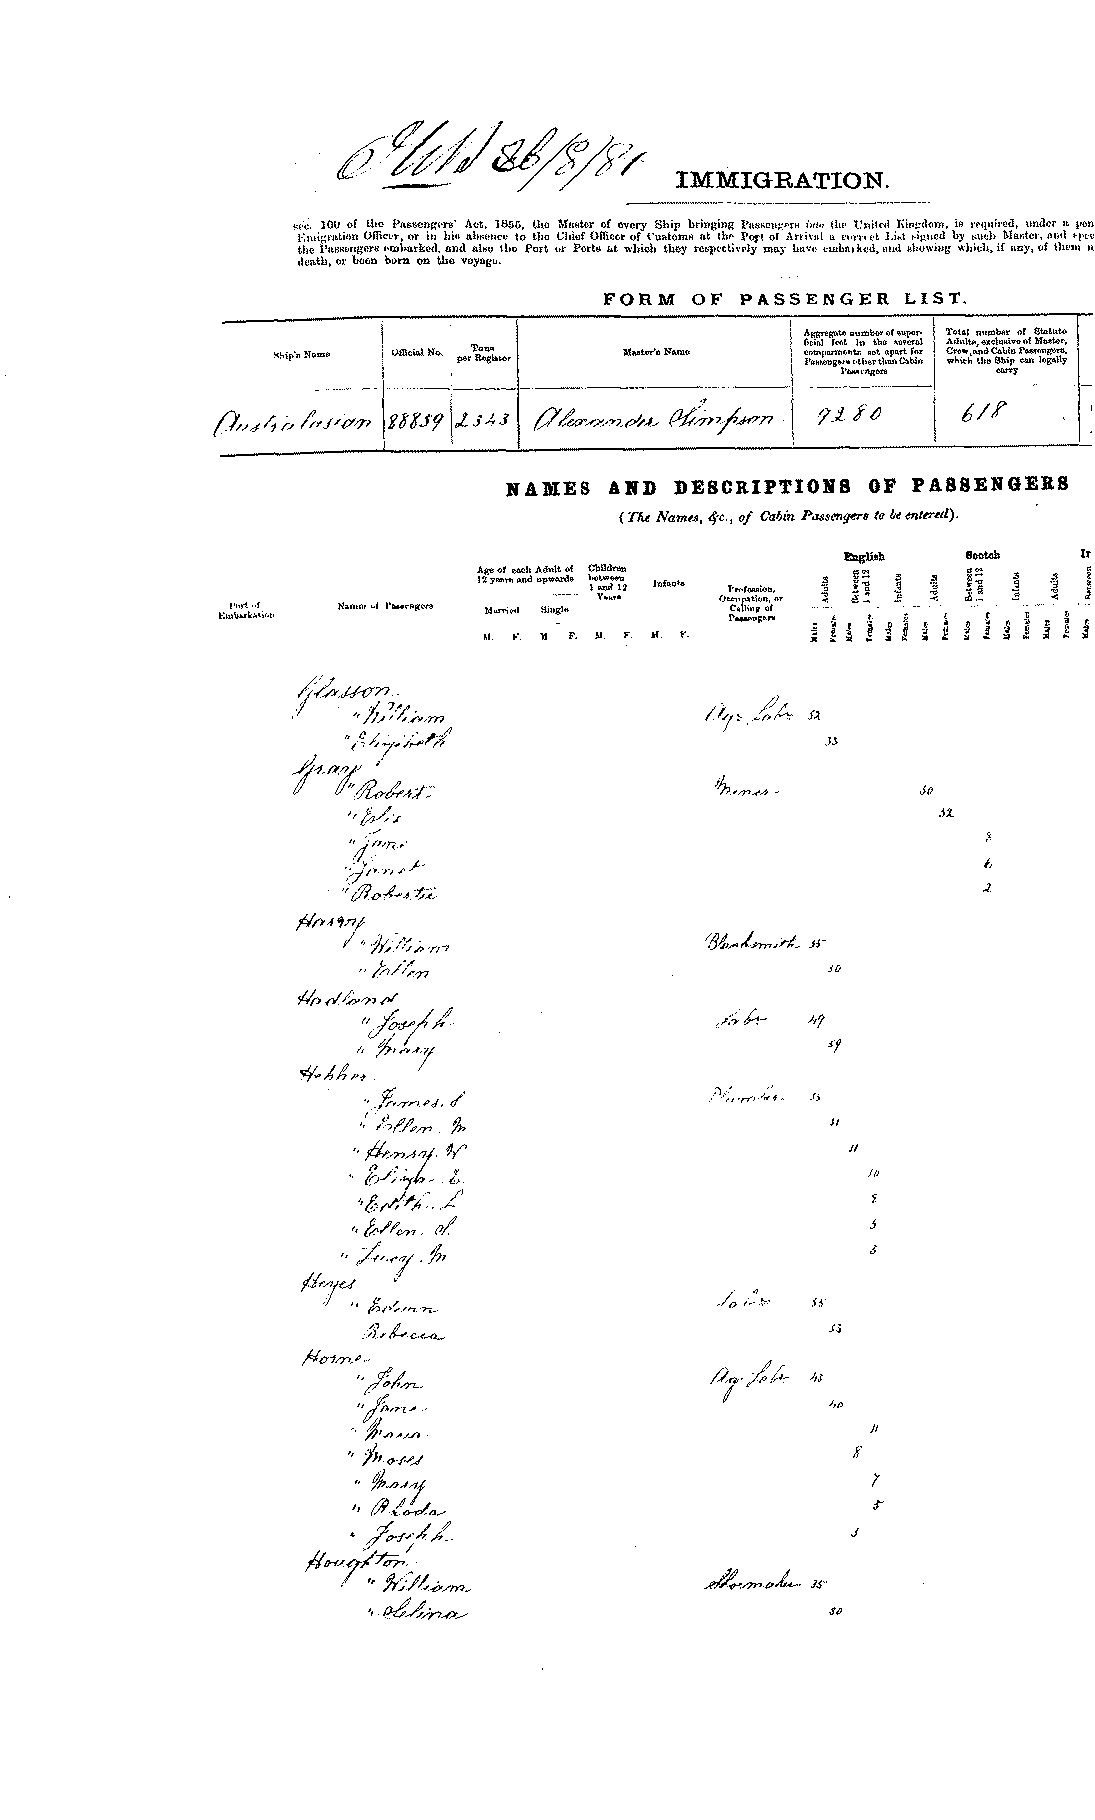 26/8/81 IMMIGRATION.
sec. 100 of the Passengers' Act, 1855, the Master of every Ship bringing Passengers into the United Kingdom, is required, under a pen
Emigration Officer, or in his absence to the Chief Officer of Customs at the Port of Arrival a correct List signed by such Master, and spec
the Passengers embarked, and also the Port or Ports at which they respectively may have embarked, and showing which, if any, of them
death, or been born on the voyage.
FORM OF PASSENGER LIST.
Ship's Name Official No. Tons per Register Master's Name Aggregate number of superficial feet in the several compartments set apart for Passengers other than Cabin Passengers Total number of Statute Adults, exclusive of Master, Crew, and Cabin Passengers, which the Ship can legally carry
Australasian 88859 2343 Alexander Simpson 9280 618
NAMES AND DESCRIPTIONS OF PASSENGERS
(The Names, &c., of Cabin Passengers to be entered).
English Scotch Ir
Port of Embarkation Names of Passengers Age of each Adult of 12 years and upwards Children between 1 and 12 Years Infants Profession, Occupation, or Calling of Passengers Adults Between 1 and 12 Infants Adults Between 1 and 12 Infants Adults Between
Married Single
M. F. M F. M. F. M. F. Males Females Males Females Males Females Males Females Males Females Males Females Males Females Males
Glasson
" William Agr Labr 32
" Elizabeth 33
Gray
" Robert Miner 30
" Elis 32
" Jane 8
" Janet 6
" Robertie 2
Harry
" William Blacksmith 35
" Ellen 30
Hadland
" Joseph Labr 49
" Mary 39
" James. S Plumber 35
" Ellen. M 31
" Henry. W 11
" Eliza. E 10
" Edith. L 8
" Ellen. S. 5
" Lucy. M 3
Heyes
" Edwin Labr 35
Rebecca 33
Horne
" John Ag Labr 43
" Jane 40
" Maria 11
" Moses 8
" Mary 7
" Rhoda 5
" Joseph 3
Houghton
" William Shoemaker 35
" Selina 30